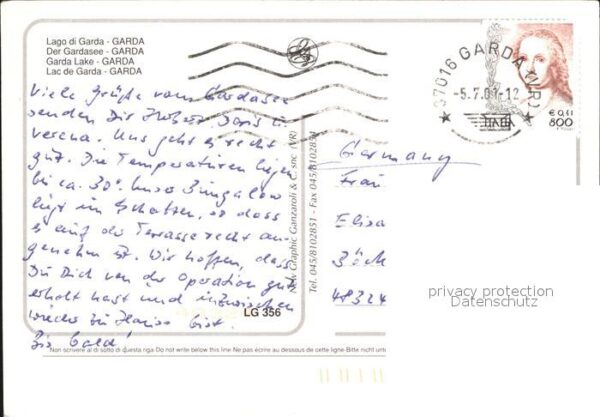 Lago di Garda - GARDA
Der Gardasee - GARDA
Garda Lake - GARDA
Lac de Garda - GARDA
37016 GARDA (VR)
-5.7.01-12
€ 0,41
800
Viele Grüße vom Gardasee
senden Dir Hubert Doris u.
Verena. Uns geht es recht
gut. Die Temperaturen liegen
bei ca. 30°. Unser Bungalow
liegt im Schatten, so dass
es auf der Terrasse recht an-
genehm ist. Wir hoffen, dass
Du Dich von der Operation gut
erholt hast und inzwischen
wieder zu Hause bist.
Bis bald!
New Graphic Ganzaroli & C. snc. (VR)
Tel. 045/8102851 - Fax 045/8102851
LG 356
Germany
Frau
Elisa
Böck
48324
privacy protection
Datenschutz
Non scrivere al di sotto di questa riga-Do not write below this line-Ne pas écrire au dessous de cette ligne-Bitte nicht unt